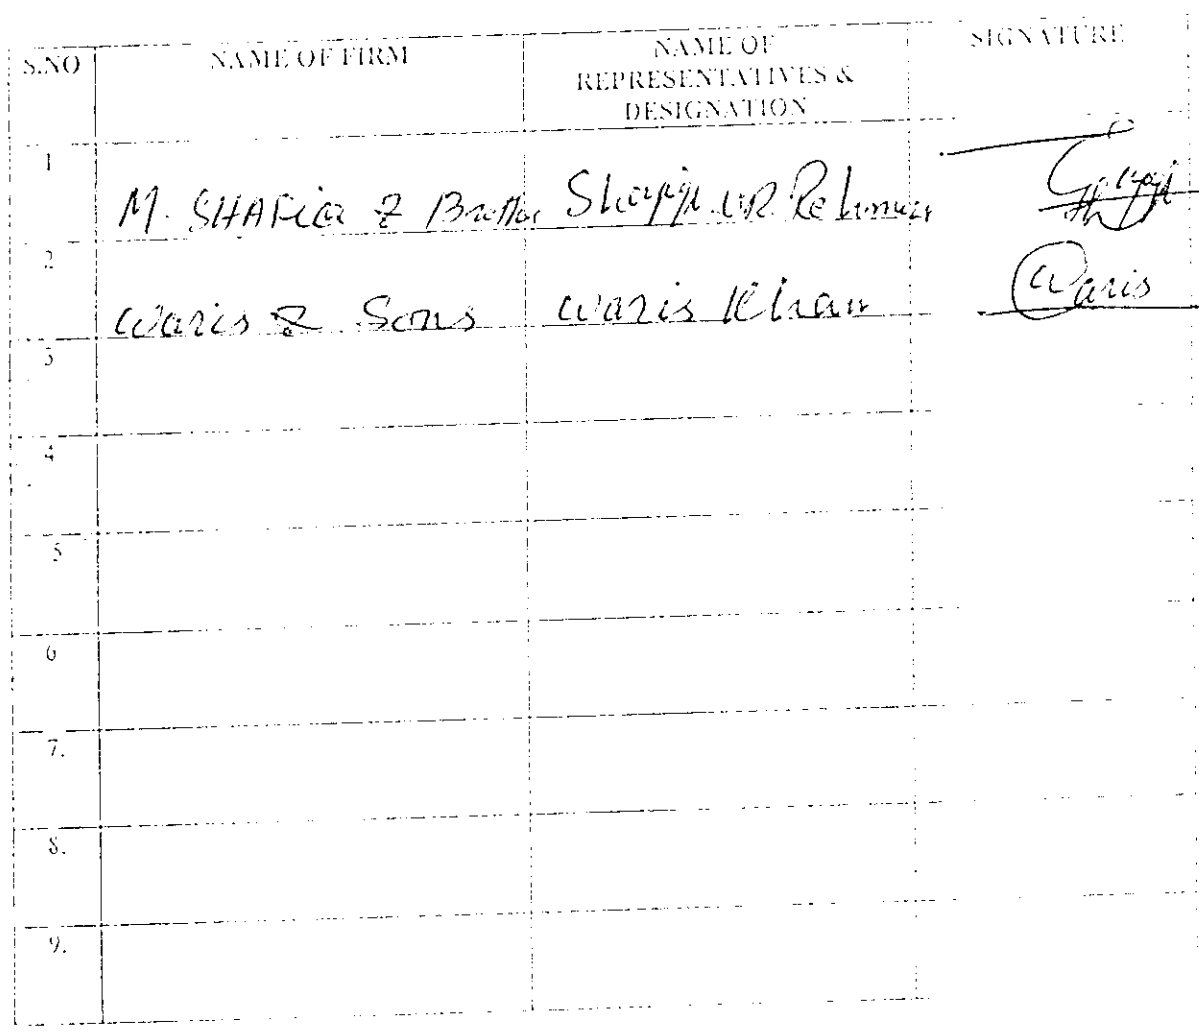 S.NO NAME OF FIRM NAME OF REPRESENTATIVES & DESIGNATION SIGNATURE
1 M. SHAFIQ & Brother Shafiq UR Rehman
2 Waris & Sons Waris Khan Waris
3
4
5
6
7.
8.
9.